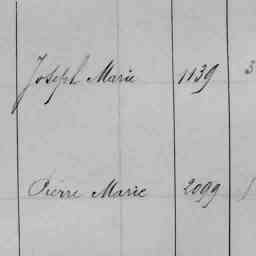 Joseph Marie 1139 3
Pierre Marie 2099